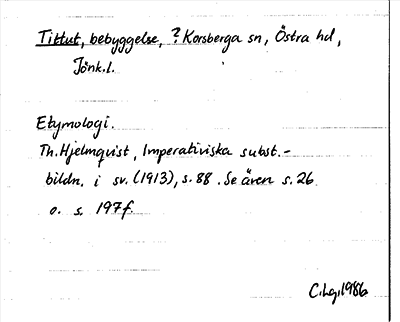 Tittut, bebyggelse, ? Korsberga sn, Östra hd,
Jönk.l.
Etymologi.
Th. Hjelmqvist, Imperativiska subst.-
bildn. i sv. (1913), s. 88. Se även s. 26
o. s. 197f.
C.Lg. 1986